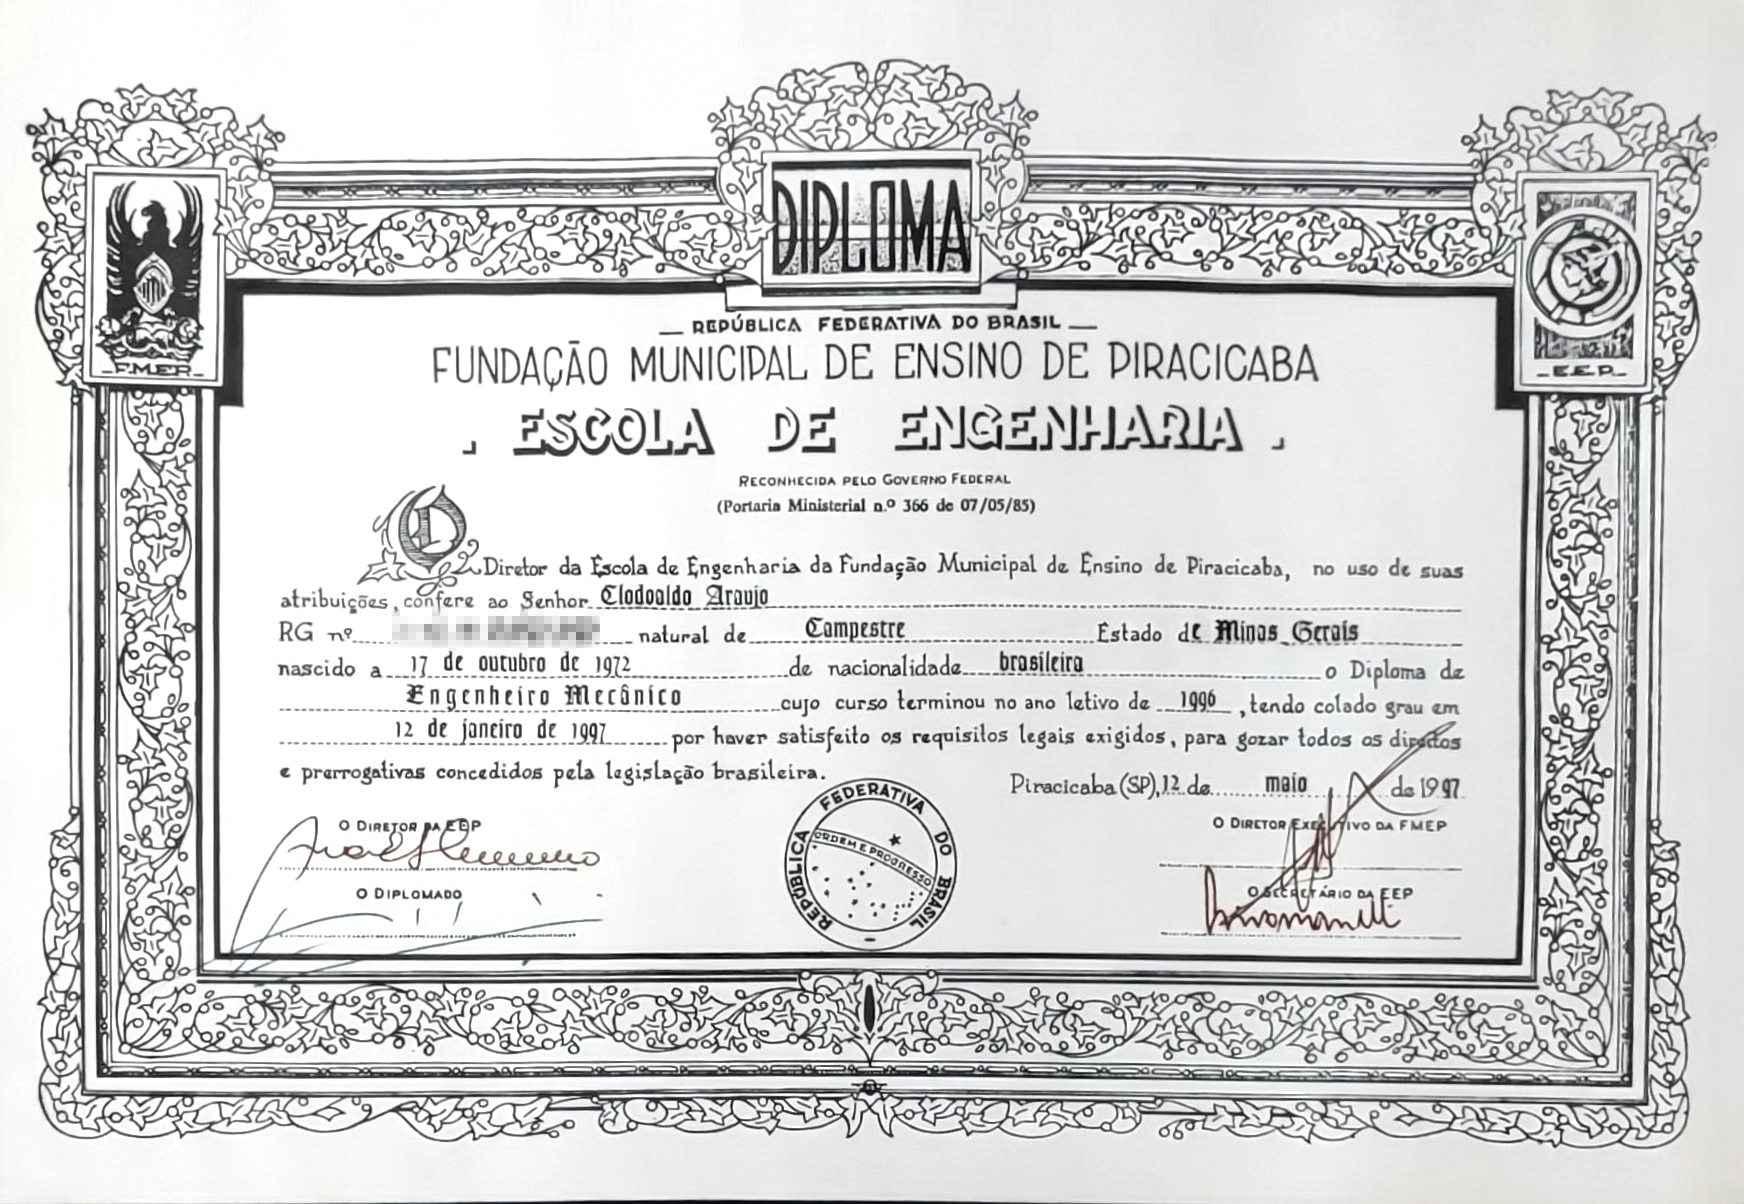 DIPLOMA
F.M.E.P.
E.E.P.
REPÚBLICA FEDERATIVA DO BRASIL
FUNDAÇÃO MUNICIPAL DE ENSINO DE PIRACICABA
ESCOLA DE ENGENHARIA
RECONHECIDA PELO GOVERNO FEDERAL
(Portaria Ministerial n.º 366 de 07/05/85)
O Diretor da Escola de Engenharia da Fundação Municipal de Ensino de Piracicaba, no uso de suas
atribuições, confere ao Senhor Clodoaldo Araujo
RG nº natural de Campestre Estado de Minas Gerais
nascido a 17 de outubro de 1972 de nacionalidade brasileira o Diploma de
Engenheiro Mecânico cujo curso terminou no ano letivo de 1996, tendo colado grau em
12 de janeiro de 1997 por haver satisfeito os requisitos legais exigidos, para gozar todos os direitos
e prerrogativas concedidos pela legislação brasileira.
Piracicaba (SP), 12 de maio de 1997
O DIRETOR DA EEP
O DIRETOR EXECUTIVO DA FMEP
O DIPLOMADO
O SECRETÁRIO DA EEP
REPÚBLICA FEDERATIVA DO BRASIL
ORDEM E PROGRESSO